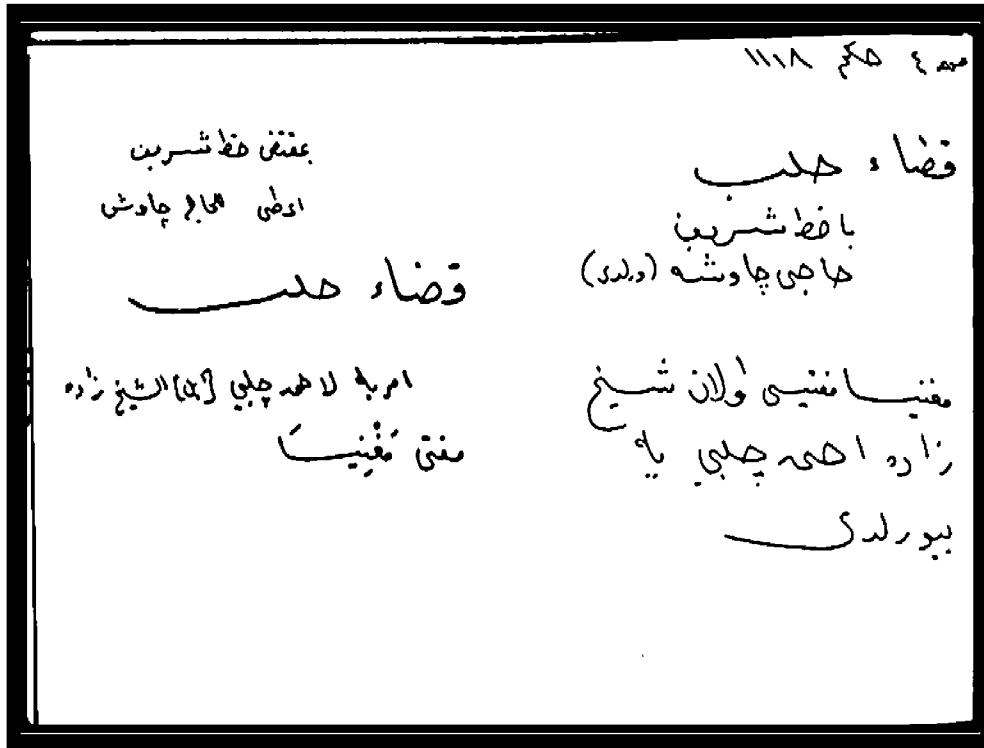 مهمه ٤ حكم ١١١٨
قضاء حلب
با خط شريف
حاجى چاوشه (ويلدى)
مغنيسا مفتيسى اولان شيخ
زاده احمد چلبي يه
بيورلدى
بمقتضى خط شريف
اعطى الحاج چاوش
قضاء حلب
امر به لاحمد چلبي الشيخ زاده
مفتى مَغْنِيسَا